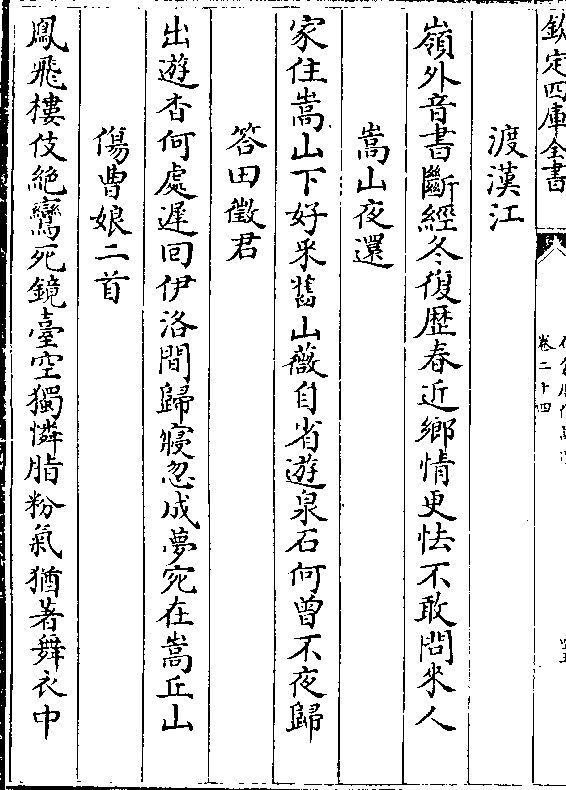 欽定四庫全書
卷二十四
渡漢江
嶺外音書斷經冬復歷春近鄉情更怯不敢問來人
嵩山夜還
家住嵩山下好采舊山薇自省遊泉石何曾不夜歸
答田徵君
出遊杳何處遲回伊洛間歸寢忽成夢宛在嵩丘山
傷曹娘二首
鳳飛樓伎絶鸞死鏡臺空獨憐脂粉氣猶著舞衣中